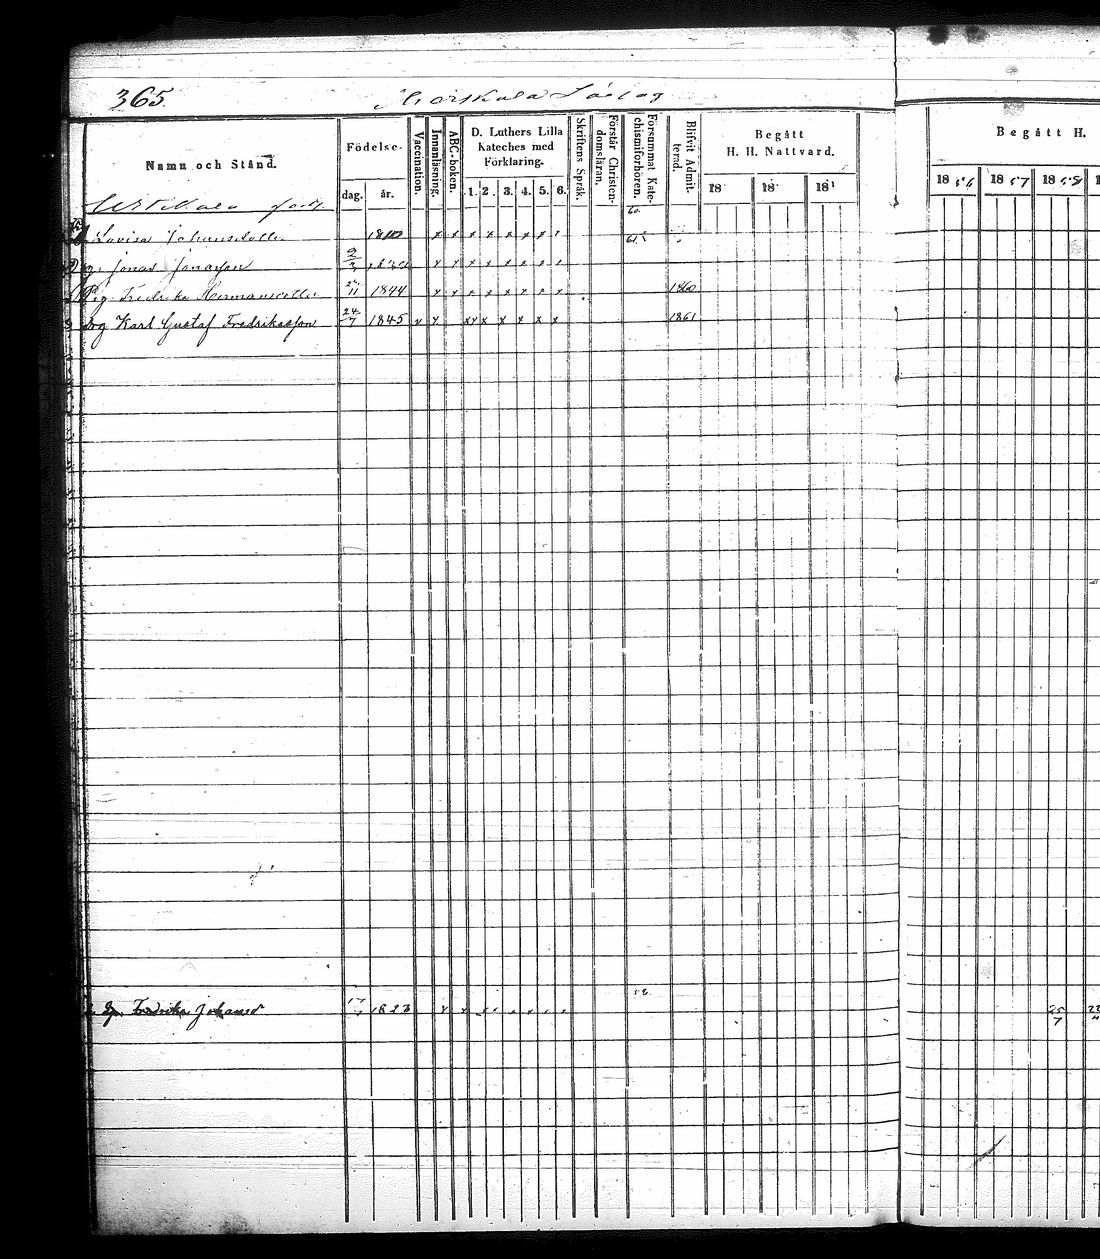 365.
Namn och Stånd.
Födelse-
dag. år.
Vaccination.
Innanläsning.
ABC-boken.
D. Luthers Lilla
Kateches med
Förklaring.
1. 2. 3. 4. 5. 6.
Skriftens Språk.
Förstår Christen-
domsläran.
Försummat Kate-
chismiförhören.
Blifvit Admit-
terad.
Begått
H. H. Nattvard.
18 18 18
Begått H.
18 56 18 57 18 58 1
60.
Lovisa Johansdotter 1810 x x x x x x x 61
Jonas Jonasson x x x x x x x
Pig. Fredrika Hermansdotter 27/11 1844 x x x x x x x x 1860
Drg Karl Gustaf Fredriksson 24/7 1845 v x x x x x x x x 1861
58.
Fredrika Johansd 17 1823 25/7